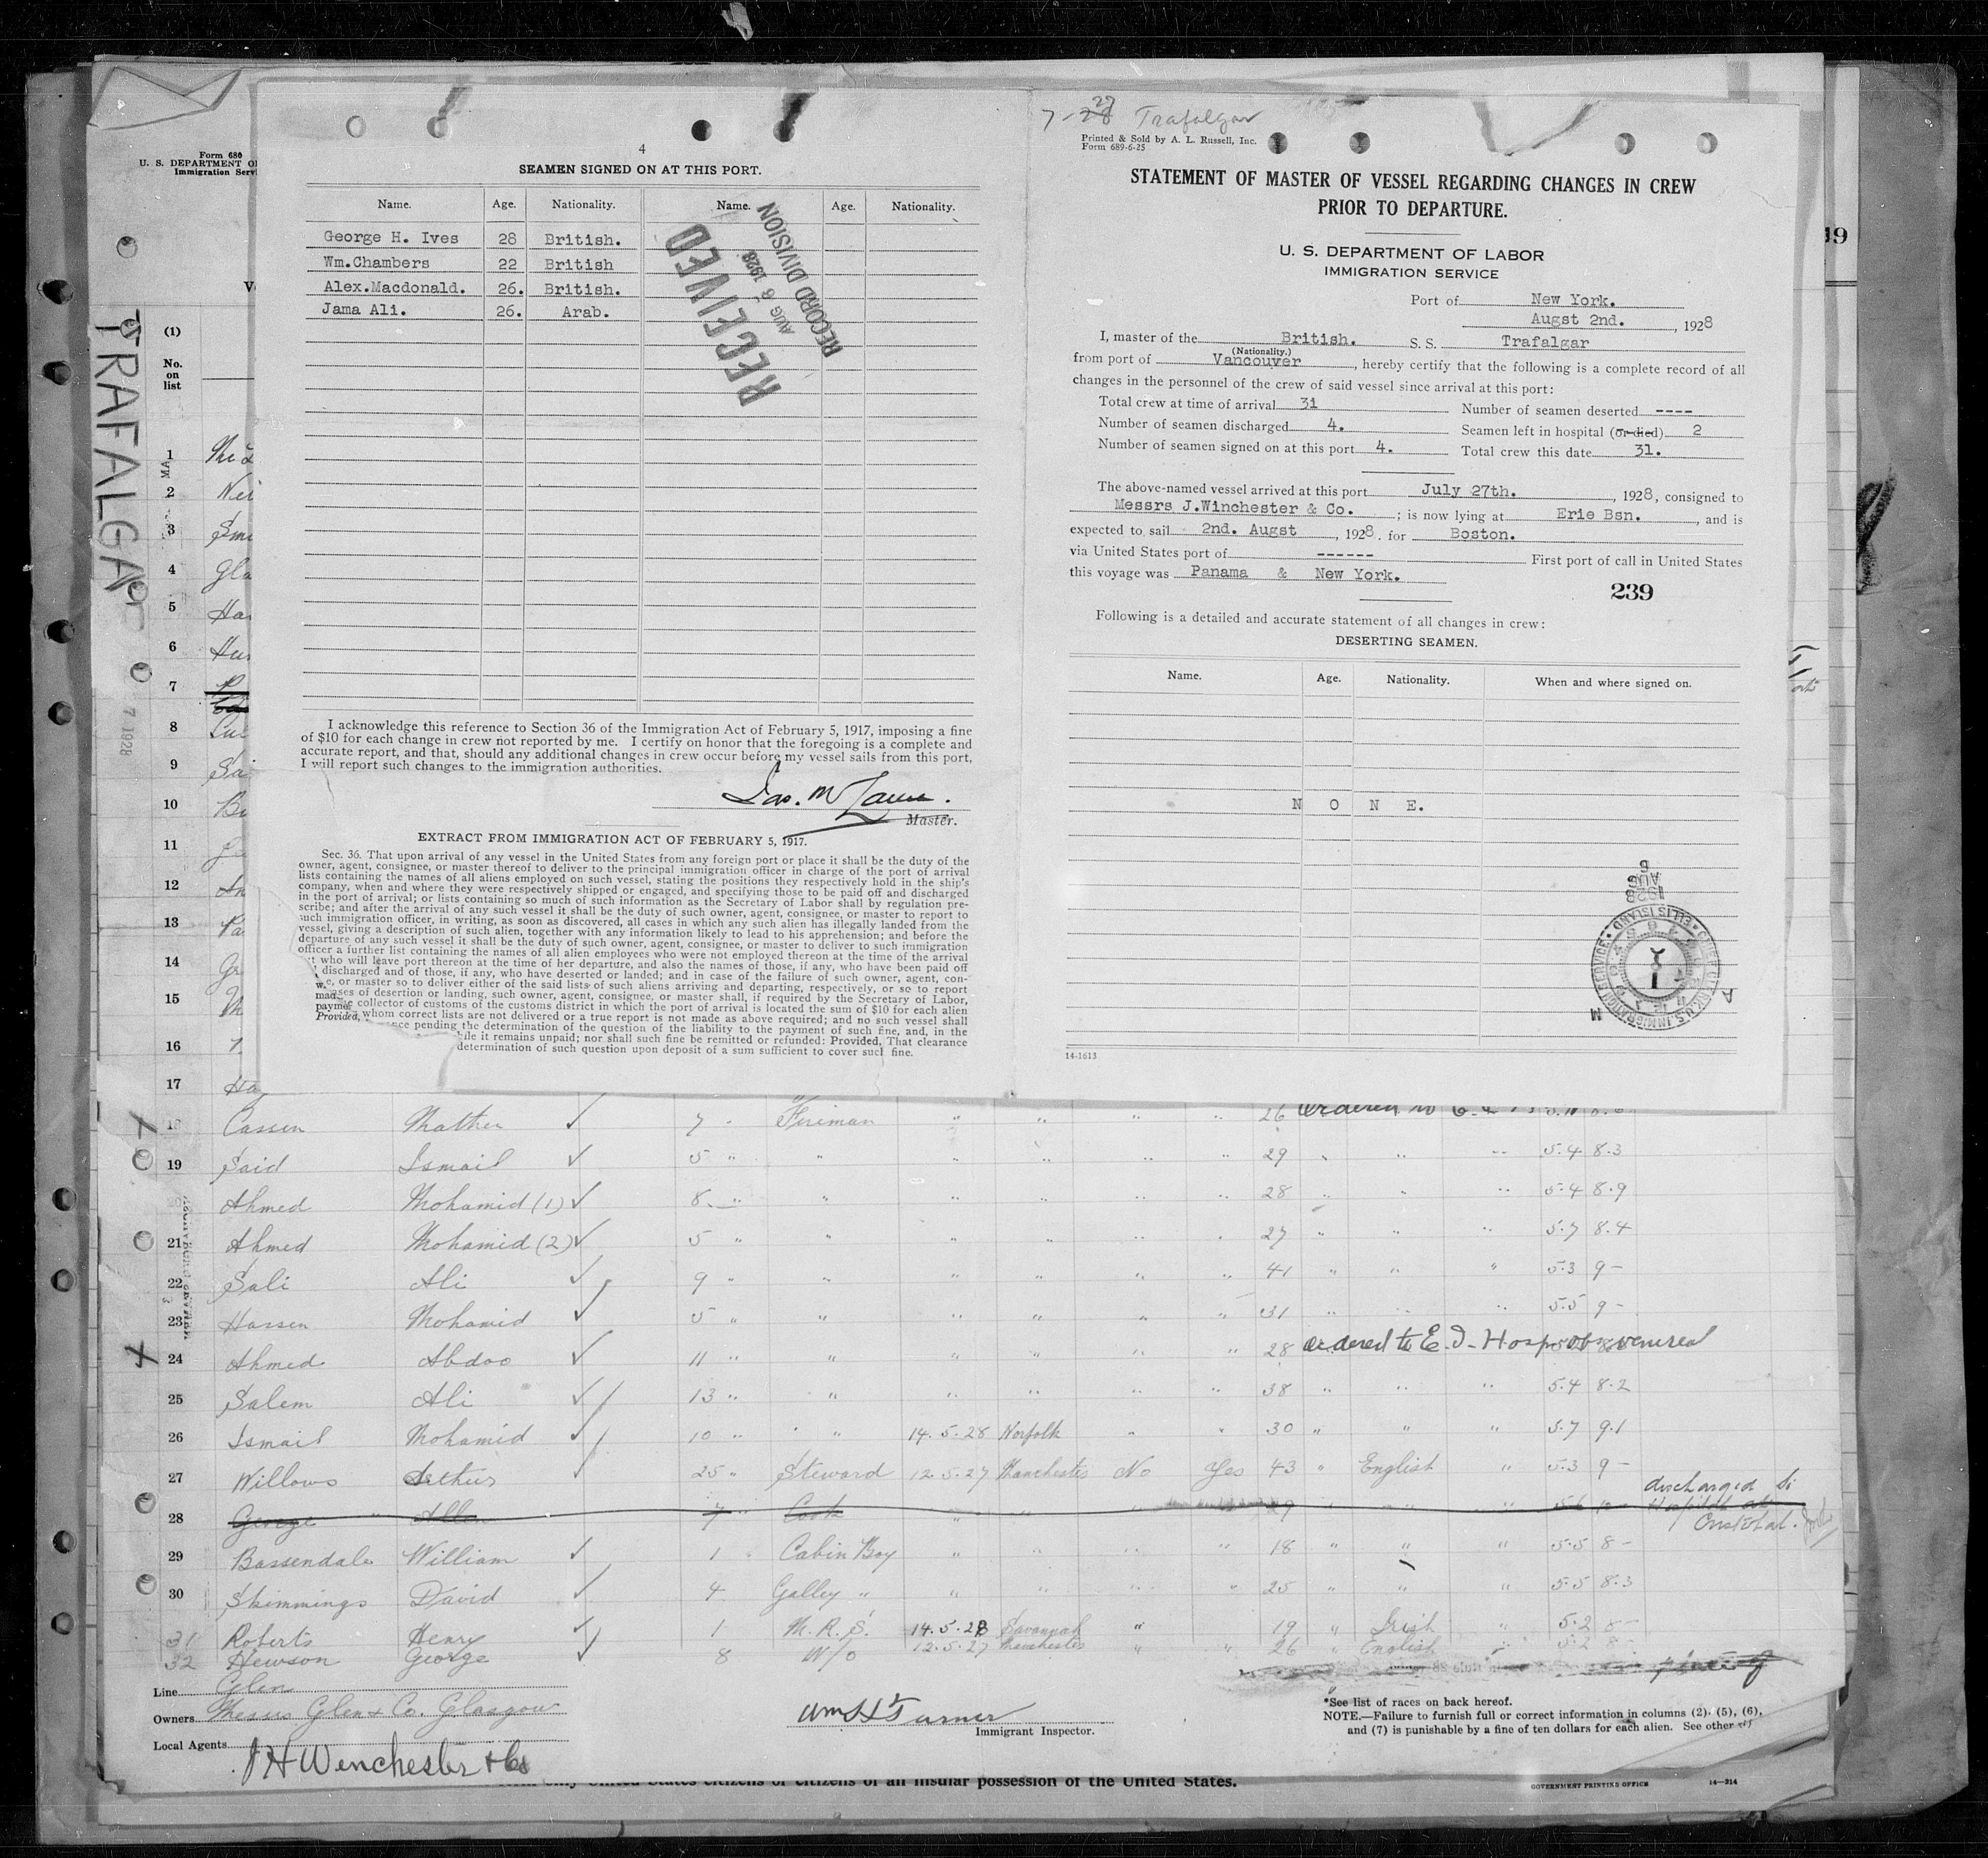 7-28 27 Trafalgar
4
SEAMEN SIGNED ON AT THIS PORT.
Name. Age. Nationality. Name. Age. Nationality.
George H. Ives 28 British.
Wm.Chambers 22 British
Alex.Macdonald. 26. British.
Jama Ali. 26. Arab.
RECEIVED
AUG 6 1928
RECORD DIVISION
I acknowledge this reference to Section 36 of the Immigration Act of February 5, 1917, imposing a fine
of $10 for each change in crew not reported by me. I certify on honor that the foregoing is a complete and
accurate report, and that, should any additional changes in crew occur before my vessel sails from this port,
I will report such changes to the immigration authorities.
Master.
EXTRACT FROM IMMIGRATION ACT OF FEBRUARY 5, 1917.
Sec. 36. That upon arrival of any vessel in the United States from any foreign port or place it shall be the duty of the
owner, agent, consignee, or master thereof to deliver to the principal immigration officer in charge of the port of arrival
lists containing the names of all aliens employed on such vessel, stating the positions they respectively hold in the ship's
company, when and where they were respectively shipped or engaged, and specifying those to be paid off and discharged
in the port of arrival; or lists containing so much of such information as the Secretary of Labor shall by regulation pre-
scribe; and after the arrival of any such vessel it shall be the duty of such owner, agent, consignee, or master to report to
such immigration officer, in writing, as soon as discovered, all cases in which any such alien has illegally landed from the
vessel, giving a description of such alien, together with any information likely to lead to his apprehension; and before the
departure of any such vessel it shall be the duty of such owner, agent, consignee, or master to deliver to such immigration
officer a further list containing the names of all alien employees who were not employed thereon at the time of the arrival
who will leave port thereon at the time of her departure, and also the names of those, if any, who have been paid off
discharged and of those, if any, who have deserted or landed; and in case of the failure of such owner, agent, con-
e, or master so to deliver either of the said lists of such aliens arriving and departing, respectively, or so to report
ases of desertion or landing, such owner, agent, consignee, or master shall, if required by the Secretary of Labor,
collector of customs of the customs district in which the port of arrival is located the sum of $10 for each alien
Provided, whom correct lists are not delivered or a true report is not made as above required; and no such vessel shall
nce pending the determination of the question of the liability to the payment of such fine, and, in the
ile it remains unpaid; nor shall such fine be remitted or refunded: Provided, That clearance
determination of such question upon deposit of a sum sufficient to cover such fine.
Printed & Sold by A. L. Russell, Inc.
Form 689-6-25
STATEMENT OF MASTER OF VESSEL REGARDING CHANGES IN CREW
PRIOR TO DEPARTURE.
U. S. DEPARTMENT OF LABOR
IMMIGRATION SERVICE
Port of New York.
Augst 2nd., 1928
I, master of the British. S. S. Trafalgar
(Nationality.)
from port of Vancouver, hereby certify that the following is a complete record of all
changes in the personnel of the crew of said vessel since arrival at this port:
Total crew at time of arrival 31 Number of seamen deserted ----
Number of seamen discharged 4. Seamen left in hospital (or died) 2
Number of seamen signed on at this port 4. Total crew this date 31.
The above-named vessel arrived at this port July 27th., 1928, consigned to
Messrs J.Winchester & Co.; is now lying at Erie Bsn., and is
expected to sail 2nd. Augst, 1928. for Boston.
via United States port of ------ First port of call in United States
this voyage was Panama & New York.
239
Following is a detailed and accurate statement of all changes in crew:
DESERTING SEAMEN.
Name. Age. Nationality. When and where signed on.
N O N E.
AUG 1928
ELLIS ISLAND
14-1613
Form 680
U. S. DEPARTMENT O
Immigration Serv
TRAFALGAR
7 1928
(1)
No.
on
list
1
2
3
4
5
6
7
8
9
10
11
12
13
14
15
16
17
18 Cassen Mather ✓ 7 Fireman 26
19 Said Ismail ✓ 5 " " 29 5.4 8.3
Ahmed Mohamid (1) ✓ 8 " " 28 5.4 8.9
21 Ahmed Mohamid (2) ✓ 5 " " 27 5.7 8.4
22 Sali Ali ✓ 9 " " 41 5.3 9-
23 Hassen Mohamid ✓ 5 " " 31 5.5 9-
24 Ahmed Abdoo ✓ 11 " " 28 ordered to E.I. Hosp venereal
25 Salem Ali ✓ 13 " " 38 5.4 8.2
26 Ismail Mohamid ✓ 10 " " 14.5.28 Norfolk 30 5.7 9.1
27 Willows Arthur ✓ 25 " Steward 12.5.27 Manchester No Yes 43 " English " 5.3 9-
28 George Allen 7 " Cook 29 discharged to Hospital at Cristobal.
29 Bassendale William ✓ 1 Cabin Boy 18 5.5 8-
30 Skimmings David ✓ 4 Galley " 25 5.5 8.3
31 Roberts Henry ✓ 1 M.R.S. 14.5.28 Savannah " 19 " Irish " 5.2 8-
32 Hewson George ✓ 8 W/o 12.5.27 Manchester " 26 " English 5.2 8-
Line Glen
Owners Messrs Glen & Co. Glasgow
Local Agents J H Winchester & Co
Wm H Turner
Immigrant Inspector.
*See list of races on back hereof.
NOTE.—Failure to furnish full or correct information in columns (2), (5), (6),
and (7) is punishable by a fine of ten dollars for each alien. See other
United States citizens or citizens of an insular possession of the United States.
GOVERNMENT PRINTING OFFICE 14—214